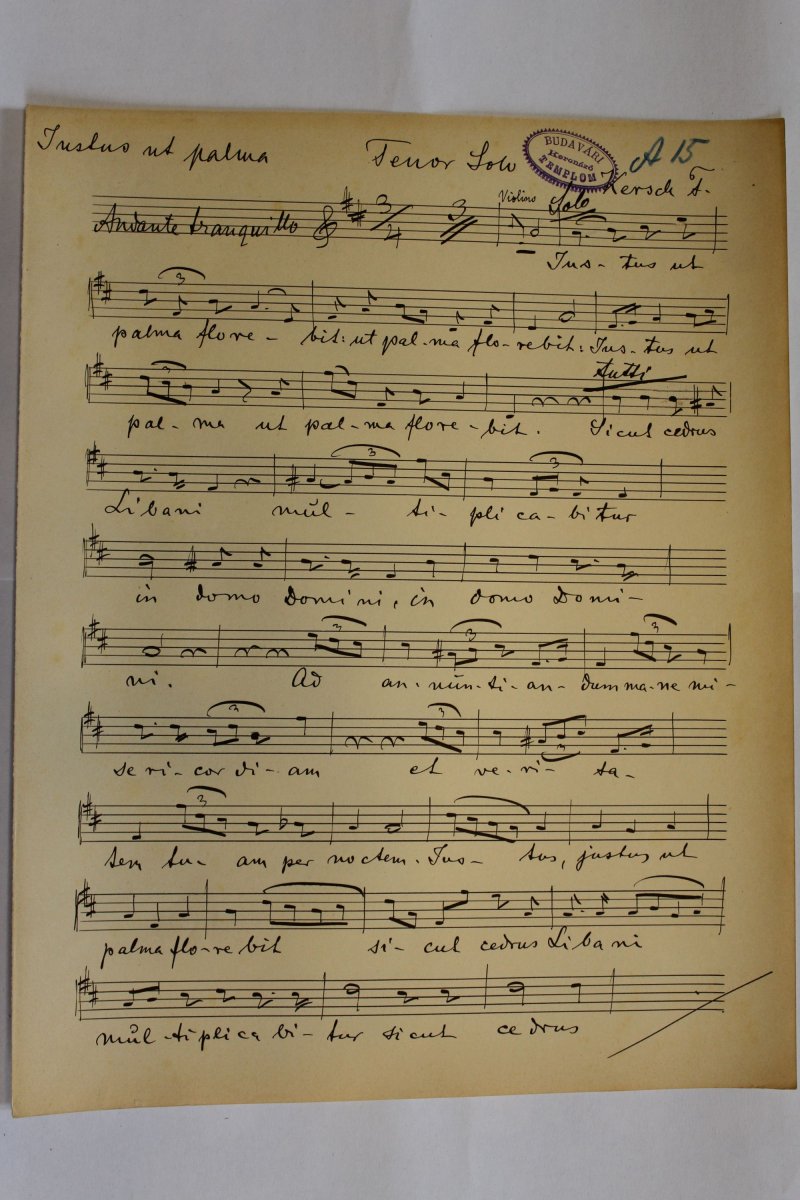 Iustus ut palma Tenor Solo BUDAVÁRI Koronázó TEMPLOM A 15
Kersch F.
Violino Solo
Andante tranquillo 3/4 3
Ius- tus ut
3
palma flore- bit: ut pal-ma flo-rebit: Jus-tus ut
3 Tutti
pal- ma ut pal-ma flore-bit. Sicut cedrus
3 3
Libani mŭl- ti- plica-bitur
in domo Domini, in domo Domi-
3 3 3
ni. Ad an-nŭn-ti-an-dum ma-ne mi-
3 3 3
se ri-cor di-am et ve-ri-ta-
3
tem tu- am per noctem. Jus- tus, justus ut
palma flo-re bit si- cut cedrus Libani
mŭl-tiplica bi-tur sicut cedrus